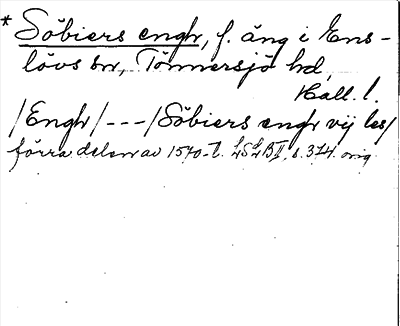 * Söbiers engh, f. äng i Ens-
lövs sn, Tönnersjö hd,
Hall. l.
/Engh/---/Söbiers engh vij les/
förra delen av 1540-t. LSLB II, s. 374. orig